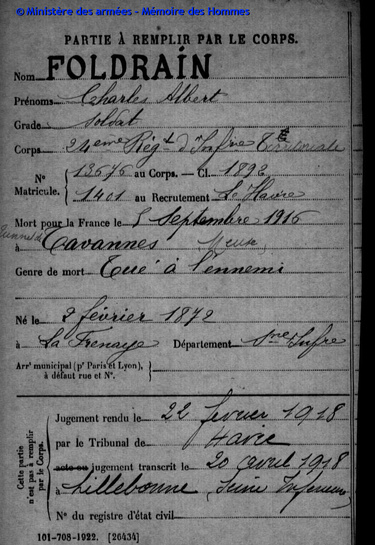 © Ministère des armées - Mémoire des Hommes
PARTIE À REMPLIR PAR LE CORPS.
Nom FOLDRAIN
Prénoms Charles Albert
Grade Soldat
Corps 24eme Régt d'Infrie Territoriale
N° Matricule. 13676 au Corps. — Cl. 1892
1401 au Recrutement Le Havre
Mort pour la France le 5 Septembre 1916
Tunnel de
à Tavannes (Meuse)
Genre de mort Tué à l'ennemi
Né le 2 février 1872
à La Frenaye Département Sne Infre
Arrt municipal (pr Paris et Lyon),
à défaut rue et N°.
Cette partie n'est pas à remplir par le Corps.
Jugement rendu le 22 fevrier 1918
par le Tribunal de Havre
acte ou jugement transcrit le 20 avril 1918
à Lillebonne (Seine Inferieure)
N° du registre d'état civil
101-708-1922. [26434]